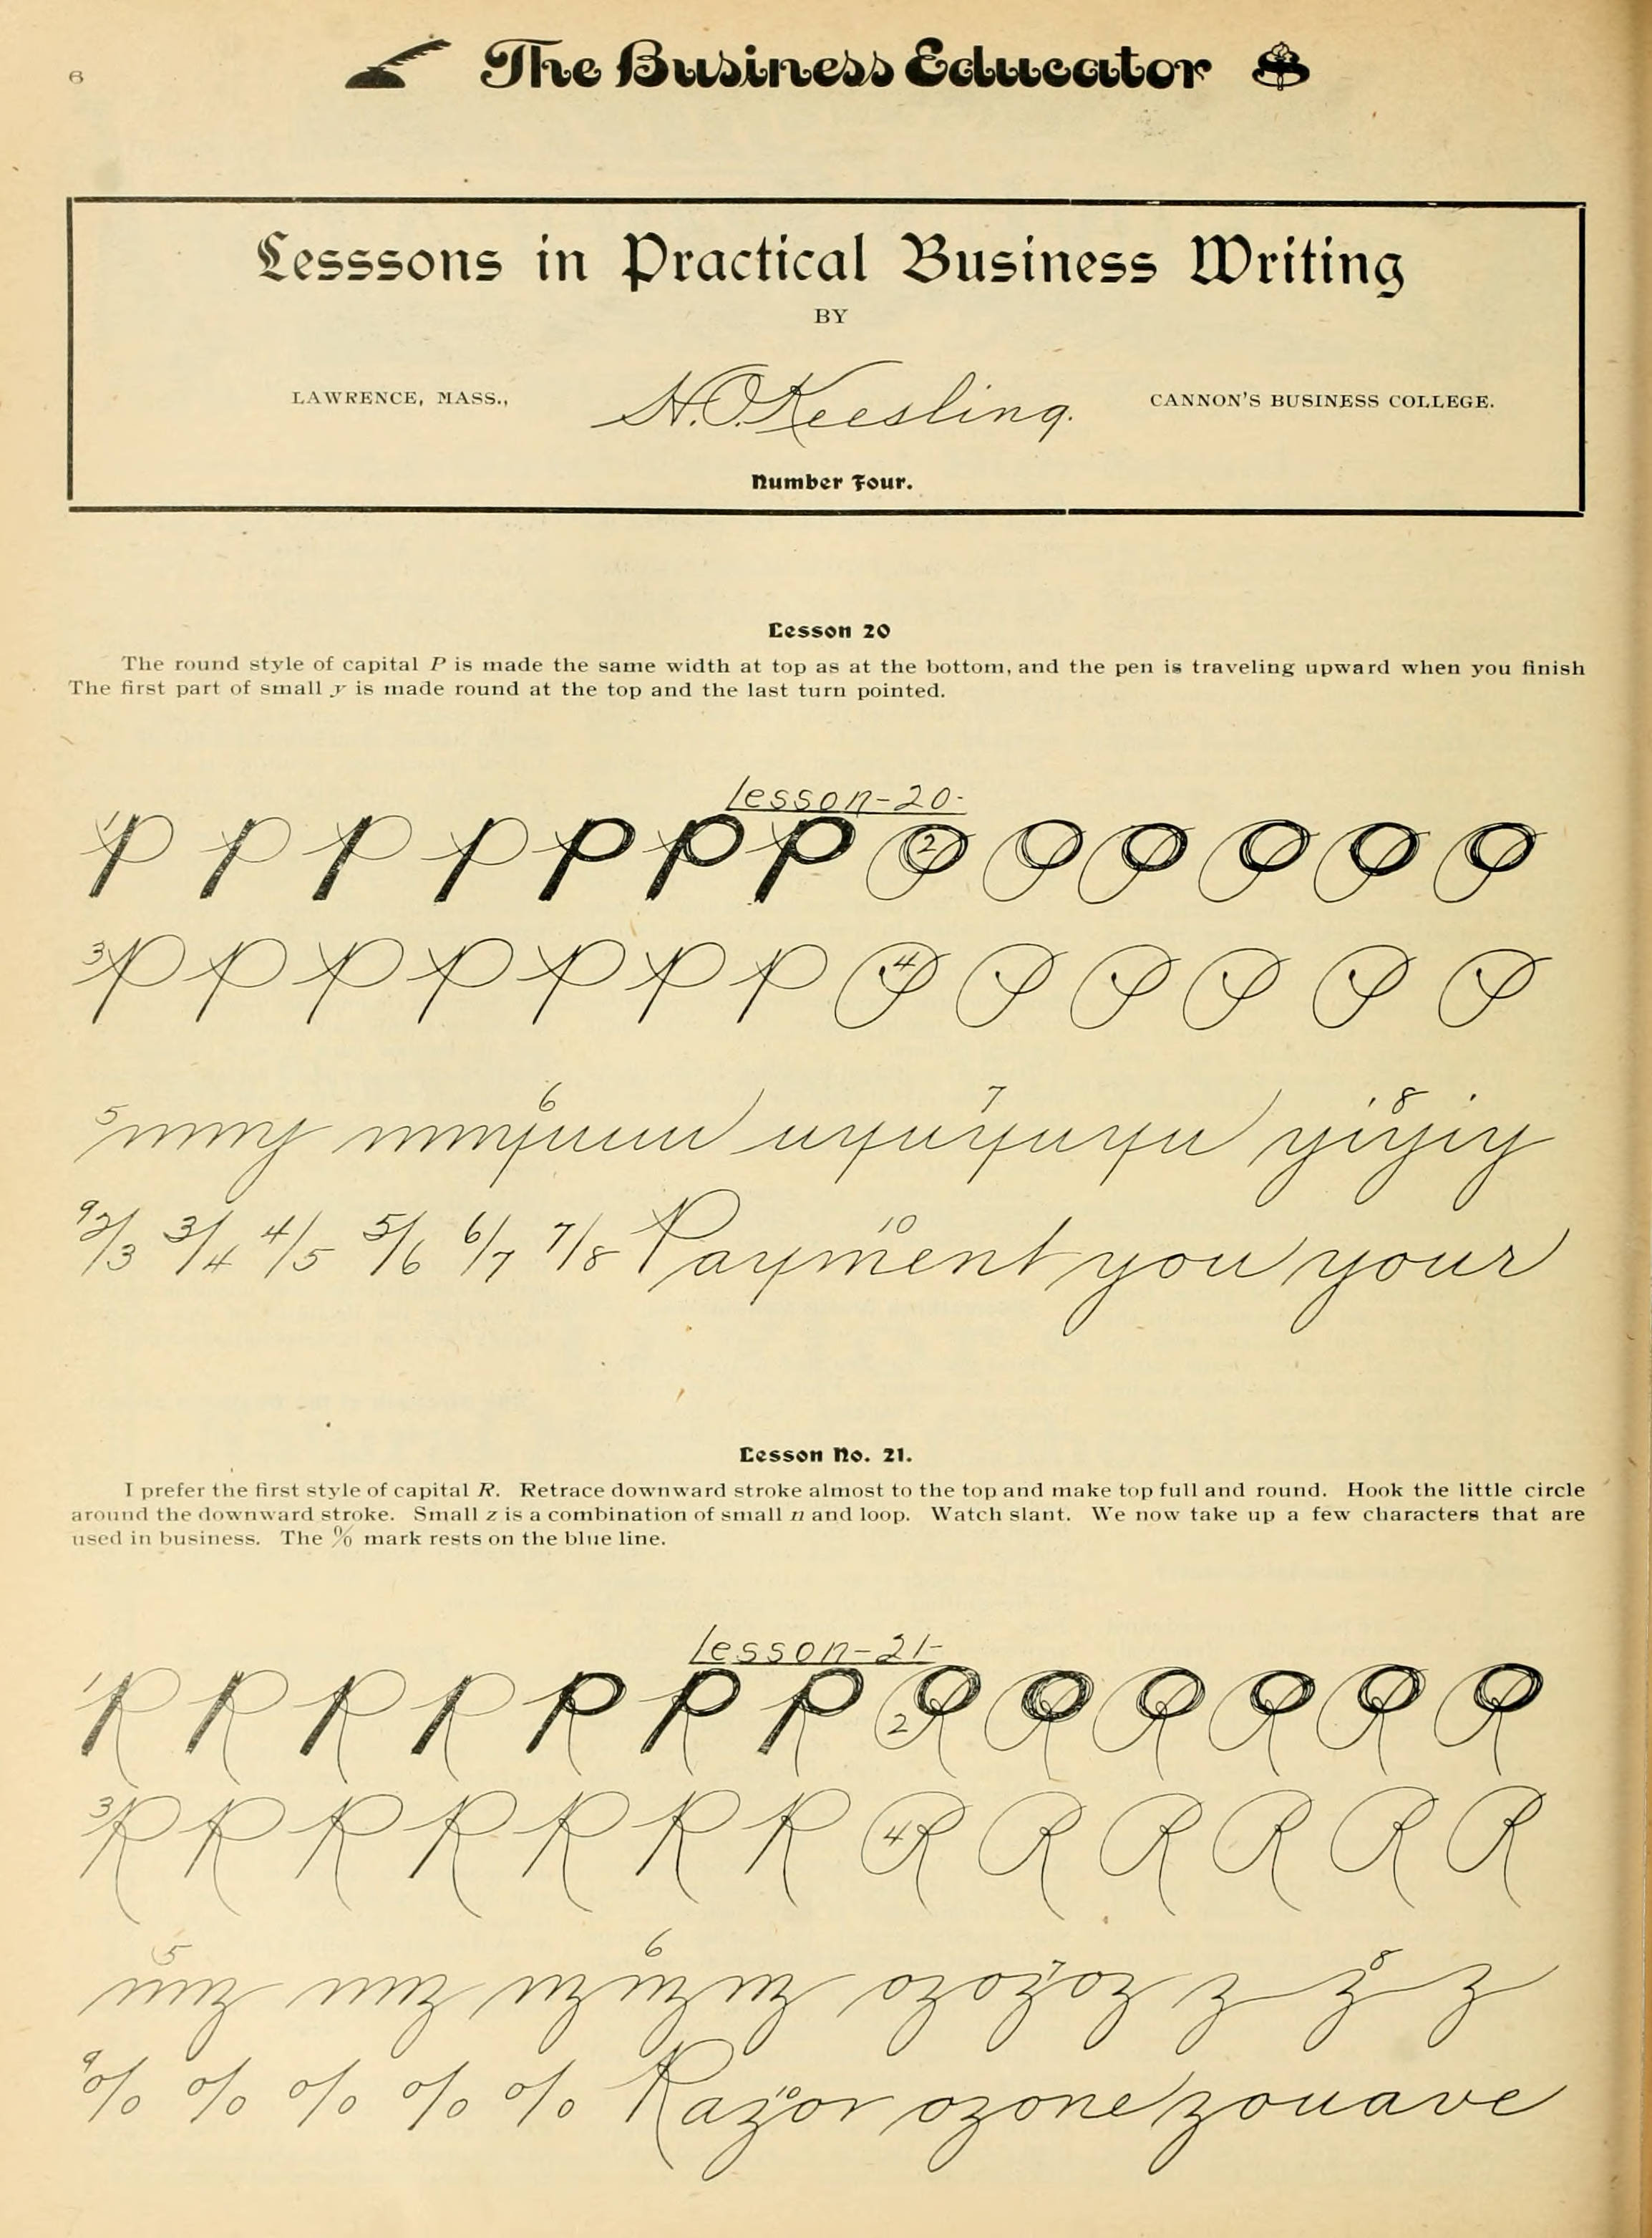 6
The Business Educator
Lesssons in Practical Business Writing
BY
LAWRENCE, MASS., H.O.Keesling. CANNON'S BUSINESS COLLEGE.
Number Four.
Lesson 20
The round style of capital P is made the same width at top as at the bottom, and the pen is traveling upward when you finish
The first part of small y is made round at the top and the last turn pointed.
lesson-20-
1 P P P P P P P 2 O O O O O O
3 P P P P P P P 4 P P P P P P
5 6 7 8
9 2/3 3/4 4/5 5/6 6/7 7/8 10 Payment you your
Lesson No. 21.
I prefer the first style of capital R. Retrace downward stroke almost to the top and make top full and round. Hook the little circle
around the downward stroke. Small z is a combination of small n and loop. Watch slant. We now take up a few characters that are
used in business. The % mark rests on the blue line.
lesson-21-
1 R R R R R R R 2 R R R R R R
3 R R R R R R R 4 R R R R R R
5 6 7 8 z z z
9 % % % % % 10 Razor ozone zouave